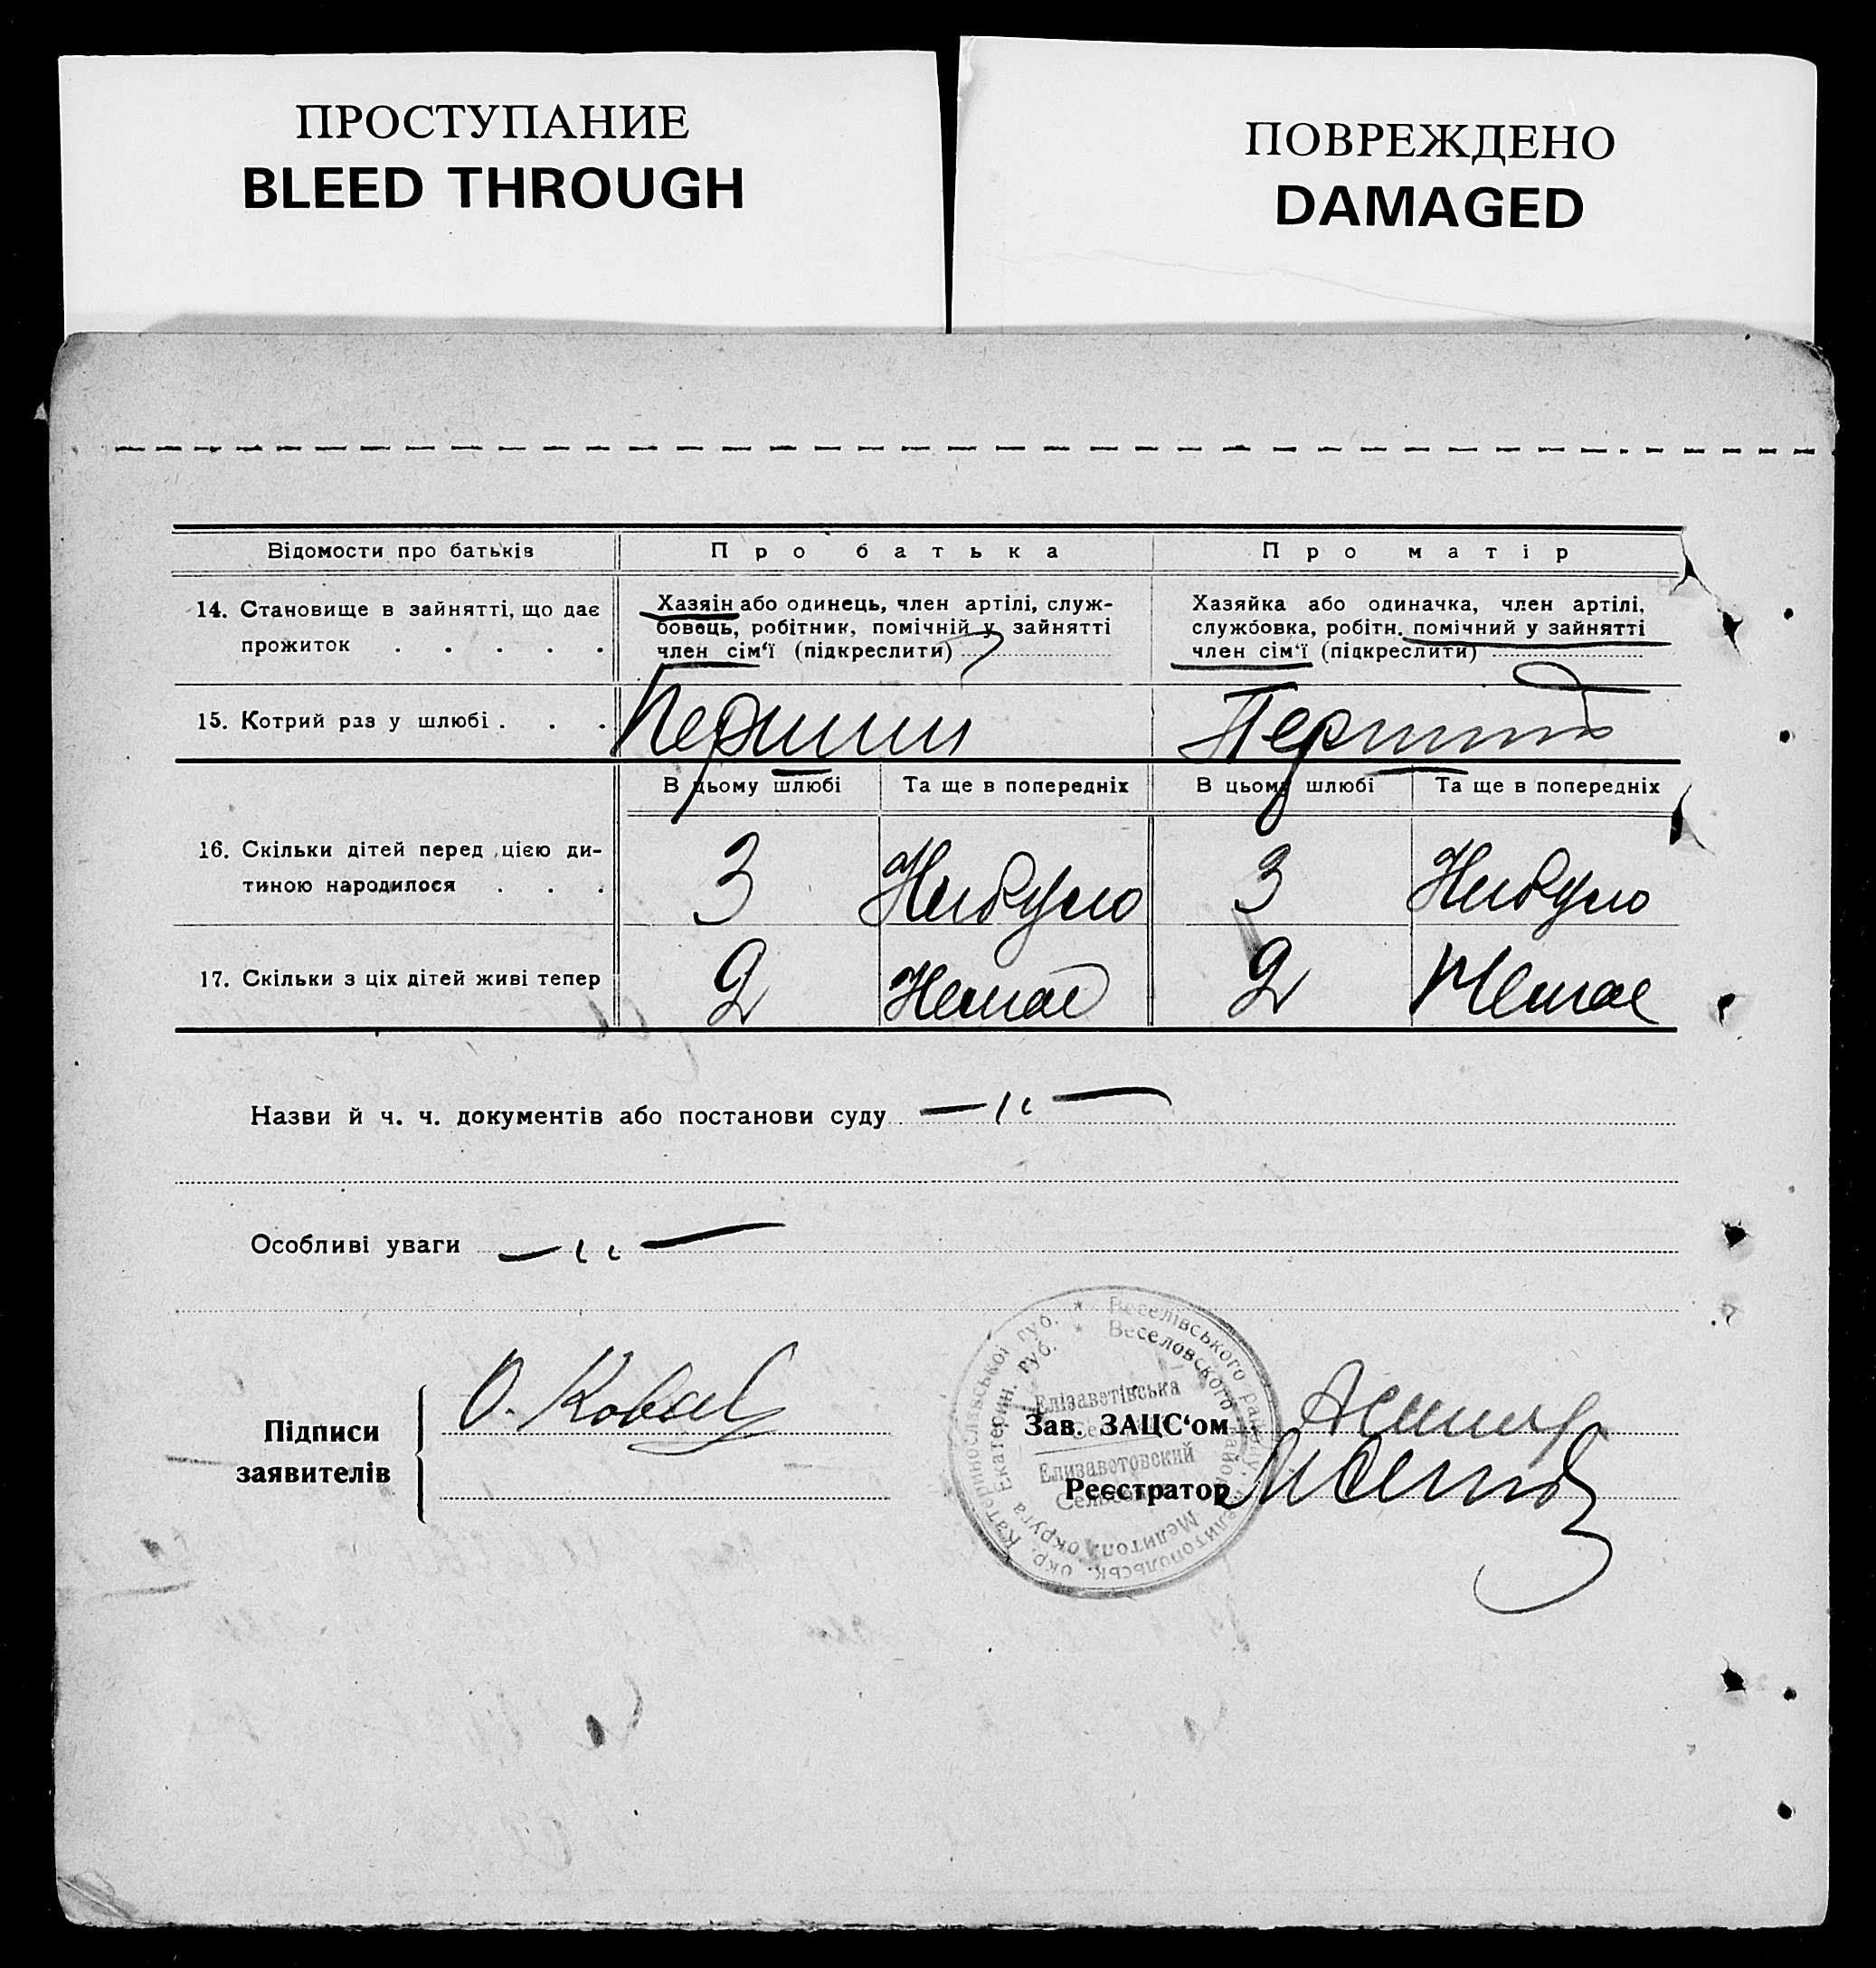 ПРОСТУПАНИЕ
BLEED THROUGH
ПОВРЕЖДЕНО
DAMAGED
Відомости про батьків
Про батька
Про матір
14. Становище в зайнятті, що дає
прожиток . . . . .
Хазяін або одинець, член артілі, служ-
бовець, робітник, помічній у зайнятті
член сім'ї (підкреслити)
Хазяйка або одиначка, член артілі,
службовка, робітн. помічний у зайнятті
член сім'ї (підкреслити)
15. Котрий раз у шлюбі . . .
Перший
Перший
В цьому шлюбі
Та ще в попередніх
В цьому шлюбі
Та ще в попередніх
16. Скільки дітей перед цією ди-
тиною народилося . . .
3
Небуло
3
Небуло
17. Скільки з ціх дітей живі тепер
2
Немає
2
Немає
Назви й ч. ч. документів або постанови суду —"—
Особливі уваги —"—
Підписи
заявителів
О. Коваль
Зав. ЗАЦС'ом
Реєстратор
Веселівського району, Мелитопольськ. окр. Катеринославської губ. *
Веселовского района Мелитоп. округа Екатерин. губ. *
Елізаветівська
Елизаветовский